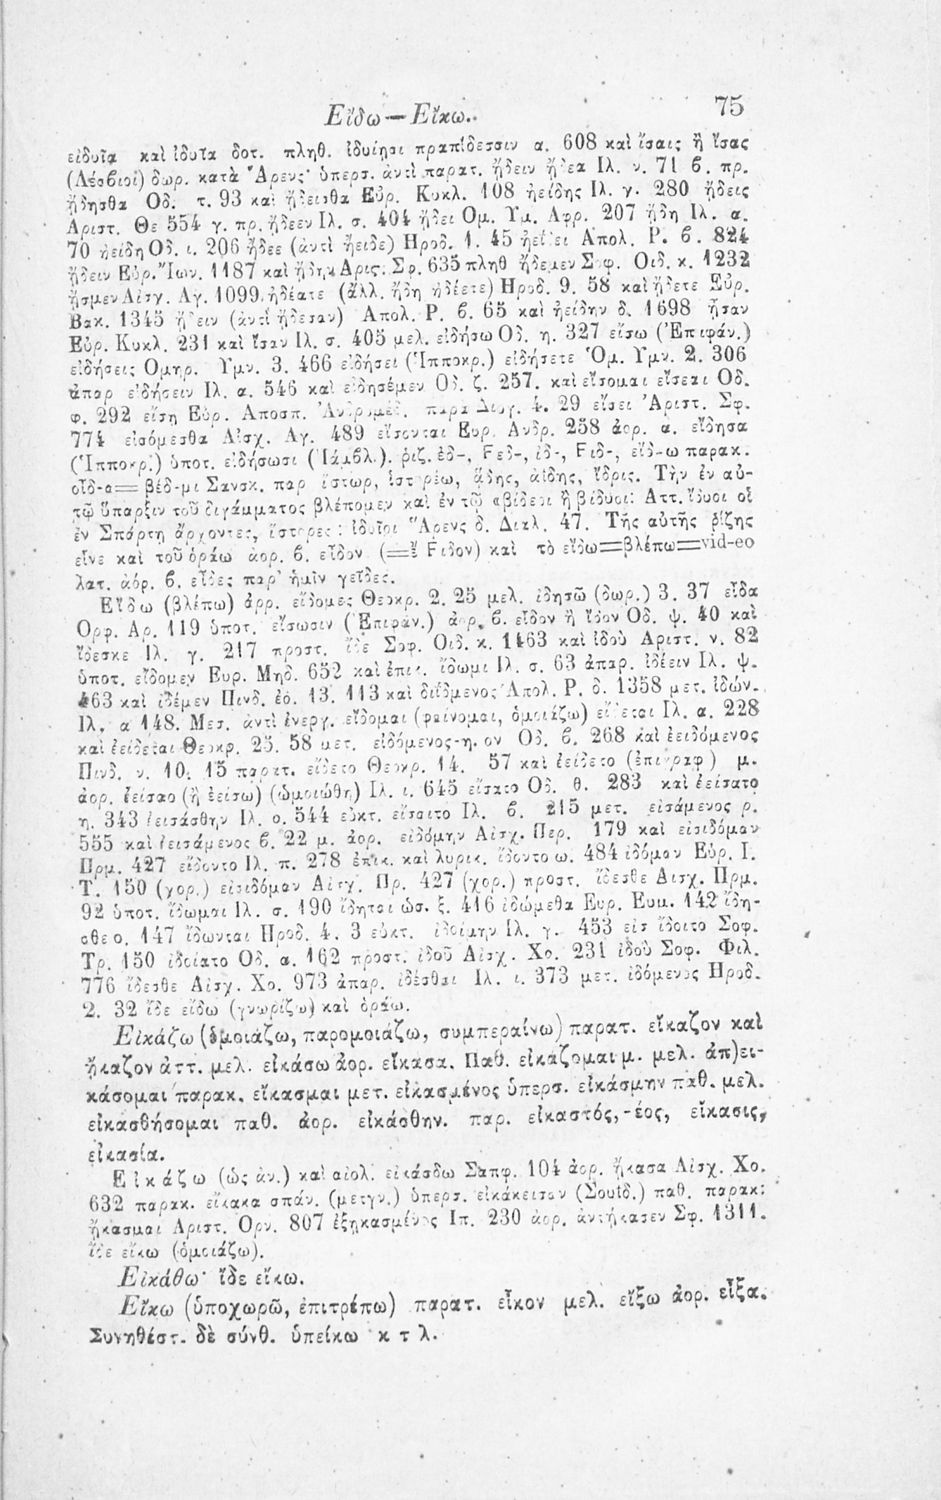 Εἴδω — Εἴκω.
75
εἰδυῖα καὶ ἰδυῖα δοτ. πληθ. ἰδυίῃσι πραπίδεσσιν α. 608 καὶ ἴσαις ἢ ἴσας
(Λέσβιοι) δωρ. κατὰ Ἄρενς· ὑπερσ. ἀντὶ παρατ. ᾔδειν ᾔδεα Ἰλ. ν. 71 β. πρ.
ᾔδησθα Οδ. τ. 93 καὶ ᾔδεισθα Εὐρ. Κυκλ. 108 ἠείδης Ἰλ. γ. 280 ᾔδεις
Αριστ. Θε 554 γ. πρ. ᾔδεεν Ἰλ. σ. 404 ᾔδει Ομ. Υμ. Αφρ. 207 ᾔδη Ἰλ. α.
70 ἠείδη Οδ. ι. 206 ᾔδεε (ἀντὶ ἤειδε) Ηροδ. 1. 45 Απολ. Ρ. β. 824
ᾔδειν Εὐρ. Ἴων. 1187 καὶ Αρις. Σφ. 635 πληθ ᾔδεμεν Σοφ. Οιδ. κ. 1232
ᾖσμεν Αἰσχ. Αγ. 1099. ᾐδέατε (ἄλλ. ᾔδη ᾐδέετε) Ηροδ. 9. 58 καὶ ᾔδετε Εὐρ.
Βακ. 1345 ᾔδειν (ἀντὶ ᾔδεσαν) Απολ. Ρ. β. 65 καὶ ἠείδην δ. 1698 ᾖσαν
Εὐρ. Κυκλ. 231 καὶ ἴσαν Ἰλ. σ. 405 μελ. εἰδήσω Οδ. η. 327 εἴσω (Ἐπιφάν.)
εἰδήσεις Ομηρ. Υμν. 3. 466 εἰδήσει (Ἱπποκρ.) εἰδήσετε Ὁμ. Υμν. 2. 306
ἀπαρ εἰδήσειν Ἰλ. α. 546 καὶ εἰδησέμεν Οδ. ζ. 257. καὶ εἴσομαι εἴσεαι Οδ.
φ. 292 εἴσῃ Εὐρ. Αποσπ. παρὰ Διογ. 4. 29 εἴσει Ἀριστ. Σφ.
774 εἰσόμεσθα Αἰσχ. Αγ. 489 εἴσονται Ευρ. Ανδρ. 258 ἀορ. α. εἴδησα
(Ἱπποκρ.) ὑποτ. εἰδήσωσι (Ἰάμβλ.). ῥιζ. ἐδ-, Fεδ-, ἰδ-, Fιδ-, εἴδ-ω παρακ.
οἶδ-α = βέδ-μι Σανσκ. παρ ἵστωρ, ἱστορέω, ᾅδης, ἀΐδης, ἴδρις. Τὴν ἐν αὐ-
τῷ ὕπαρξιν τοῦ διγάμματος βλέπομεν καὶ ἐν τῷ «βίδεοι ἢ βίδυοι: Αττ. ἴδυοι οἱ
ἐν Σπάρτῃ ἄρχοντες, ἵστορες: ἰδυῖοι Ἄρενς δ. Διαλ. 47. Τῆς αὐτῆς ῥίζης
εἶνε καὶ τοῦ ὁράω ἀορ. β. εἶδον (=ἔ Fιδον) καὶ τὸ εἴδω=βλέπω=vid-eo
λατ. ἀόρ. β. εἶδες παρ' ἡμῖν γεῖδες.
Εἴδω (βλέπω) ἀρρ. εἴδομες Θεοκρ. 2. 25 μελ. ἰδησῶ (δωρ.) 3. 37 εἶδα
Ορφ. Αρ. 119 ὑποτ. εἴσωσιν (Ἐπιφάν.) ἀορ. β. εἶδον ἢ ἴδον Οδ. ψ. 40 καὶ
ἴδεσκε Ἰλ. γ. 217 προστ. ἴδε Σοφ. Οιδ. κ. 1463 καὶ ἰδοὺ Αριστ. ν. 82
ὑποτ. εἴδομεν Ευρ. Μηδ. 652 καὶ ἐπικ. ἴδωμι Ἰλ. σ. 63 ἀπαρ. ἰδέειν Ἰλ. ψ.
463 καὶ ἰδέμεν Πινδ. ἐδ. 13. 113 καὶ διιδόμενος Ἀπολ. Ρ. δ. 1358 μετ. ἰδών.
Ἰλ. α 148. Μεσ. ἀντὶ ἐνεργ. εἴδομαι (φαίνομαι, ὁμοιάζω) εἴδεται Ἰλ. α. 228
καὶ ἐείδεται Θεοκρ. 25. 58 μετ. εἰδόμενος-η. ον Οδ. β. 268 καὶ ἐειδόμενος
Πινδ. ν. 10. 15 παρατ. εἴδετο Θεοκρ. 14. 57 καὶ ἐείδετο (ἐπιγραφ) μ.
ἀορ. ἐείσαο (ἢ ἐείσω) (ὡμοιώθη) Ἰλ. ι. 645 εἴσατο Οδ. θ. 283 καὶ ἐείσατο
η. 343 ἐεισάσθην Ἰλ. ο. 544 εὐκτ. εἴσαιτο Ἰλ. β. 215 μετ. εἰσάμενος ρ.
555 καὶ ἐεισάμενος β. 22 μ. ἀορ. εἰδόμην Αἰσχ. Περ. 179 καὶ εἰσιδόμαν
Πρμ. 427 εἴδοντο Ἰλ. π. 278 ἐπικ. καὶ λυρικ. ἴδοντο ω. 484 ἰδόμαν Εὐρ. Ι.
Τ. 150 (χορ.) εἰσιδόμαν Αἰσχ. Πρ. 427 (χορ.) προστ. ἴδεσθε Αισχ. Πρμ.
92 ὑποτ. ἴδωμαι Ἰλ. σ. 190 ἴδηται ὡσ. ξ. 416 ἰδώμεθα Ευρ. Ευμ. 142 ἴδη-
σθε ο. 147 ἴδωνται Ηροδ. 4. 3 εὐκτ. ἰδοίμην Ἰλ. γ. 453 εἰς ἴδοιτο Σοφ.
Τρ. 150 ἰδοίατο Οδ. α. 162 προστ. ἰδοῦ Αἰσχ. Χο. 231 ἰδοὺ Σοφ. Φιλ.
776 ἴδεσθε Αἰσχ. Χο. 973 ἀπαρ. ἰδέσθαι Ἰλ. ι. 373 μετ. ἰδόμενος Ηροδ.
2. 32 ἴδε εἴδω (γνωρίζω) καὶ ὁράω.
Εἰκάζω (ὁμοιάζω, παρομοιάζω, συμπεραίνω) παρατ. εἴκαζον καὶ
ᾔκαζον ἀττ. μελ. εἰκάσω ἀορ. εἴκασα. Παθ. εἰκάζομαι μ. μελ. ἀπ)ει-
κάσομαι παρακ. εἴκασμαι μετ. εἰκασμένος ὑπερσ. εἰκάσμην παθ. μελ.
εἰκασθήσομαι παθ. ἀορ. εἰκάσθην. παρ. εἰκαστός,-έος, εἴκασις,
εἰκασία.
Εἰκάζω (ὡς ἀν.) καὶ αἰολ. εἰκάσδω Σαπφ. 104 ἀορ. ᾔκασα Αἰσχ. Χο.
632 παρακ. εἴκακα σπάν. (μετγν.) ὑπερσ. εἰκάκεισαν (Σουΐδ.) παθ. παρακ:
ᾔκασμαι Αριστ. Ορν. 807 ἐξῃκασμένος Ιπ. 230 ἀορ. ἀντῄκασεν Σφ. 1311.
ἴδε εἴκω (ὁμοιάζω).
Εἰκάθω· ἴδε εἴκω.
Εἴκω (ὑποχωρῶ, ἐπιτρέπω) παρατ. εἶκον μελ. εἴξω ἀορ. εἶξα.
Συνηθέστ. δὲ σύνθ. ὑπείκω κ τ λ.